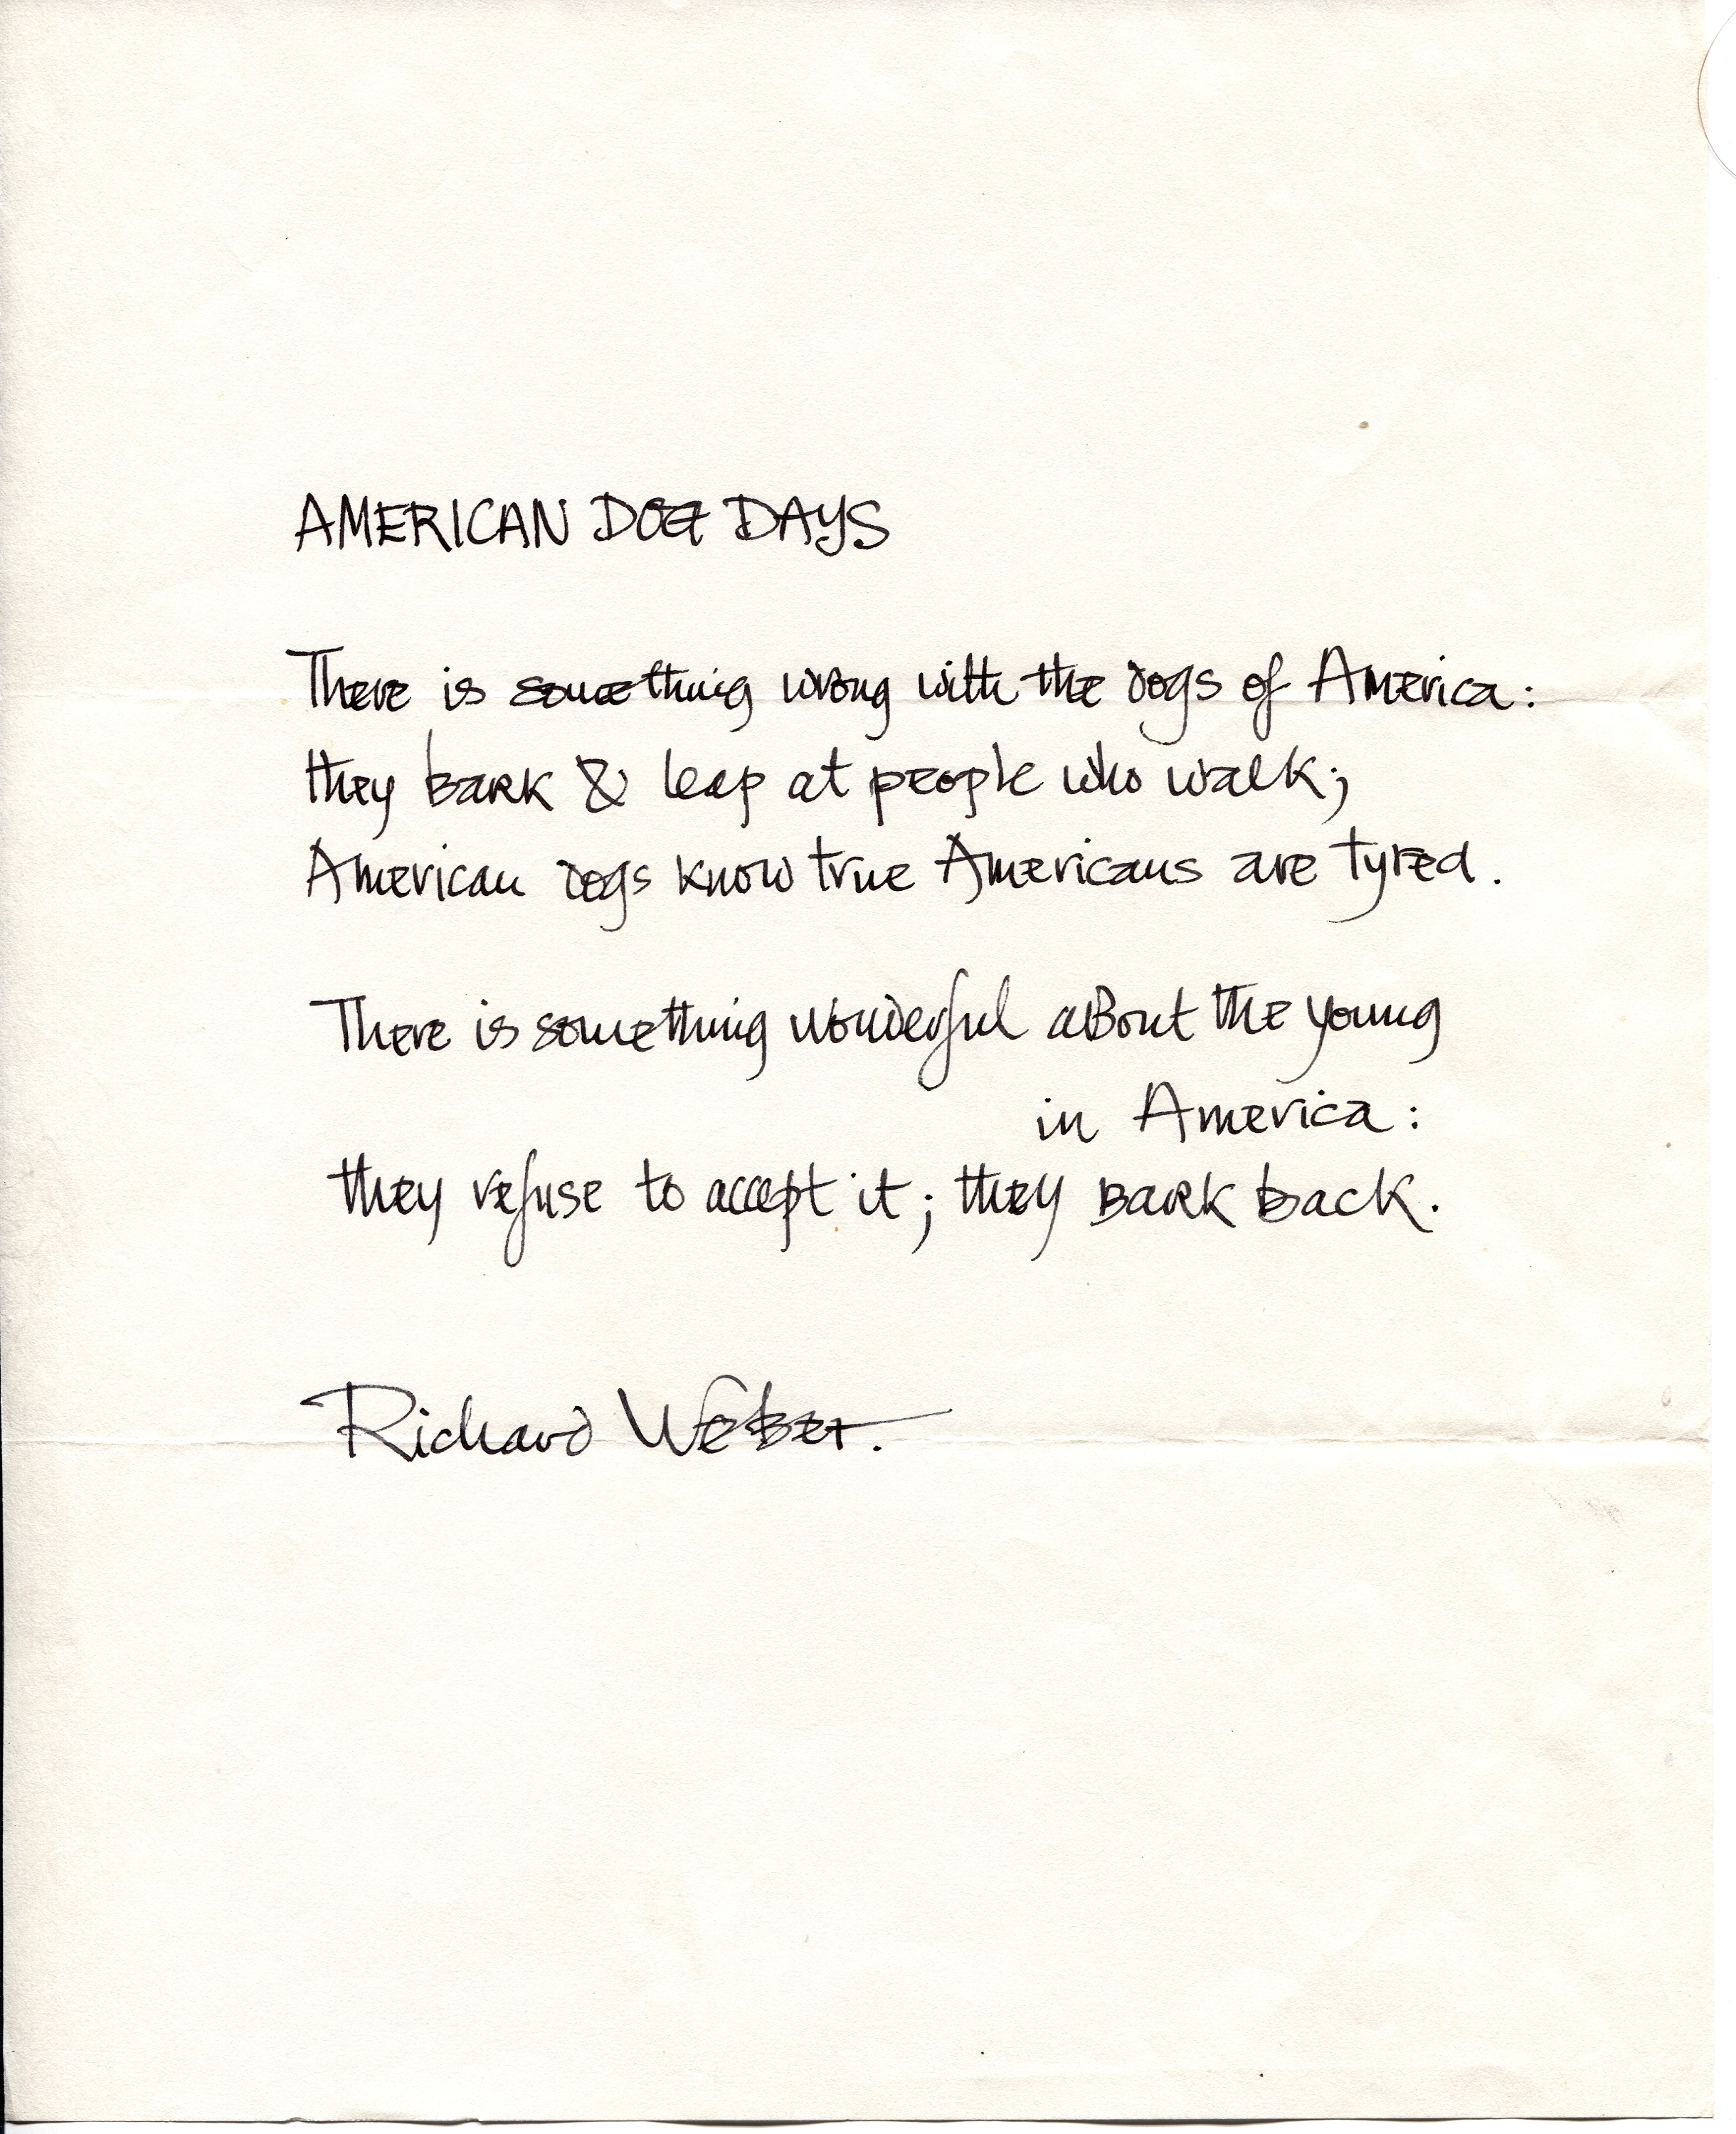 AMERICAN DOG DAYS
There is something wrong with the dogs of America:
they bark & leap at people who walk;
American dogs know true Americans are tyred.
There is something wonderful about the young
in America:
they refuse to accept it; they bark back.
Richard Weber.